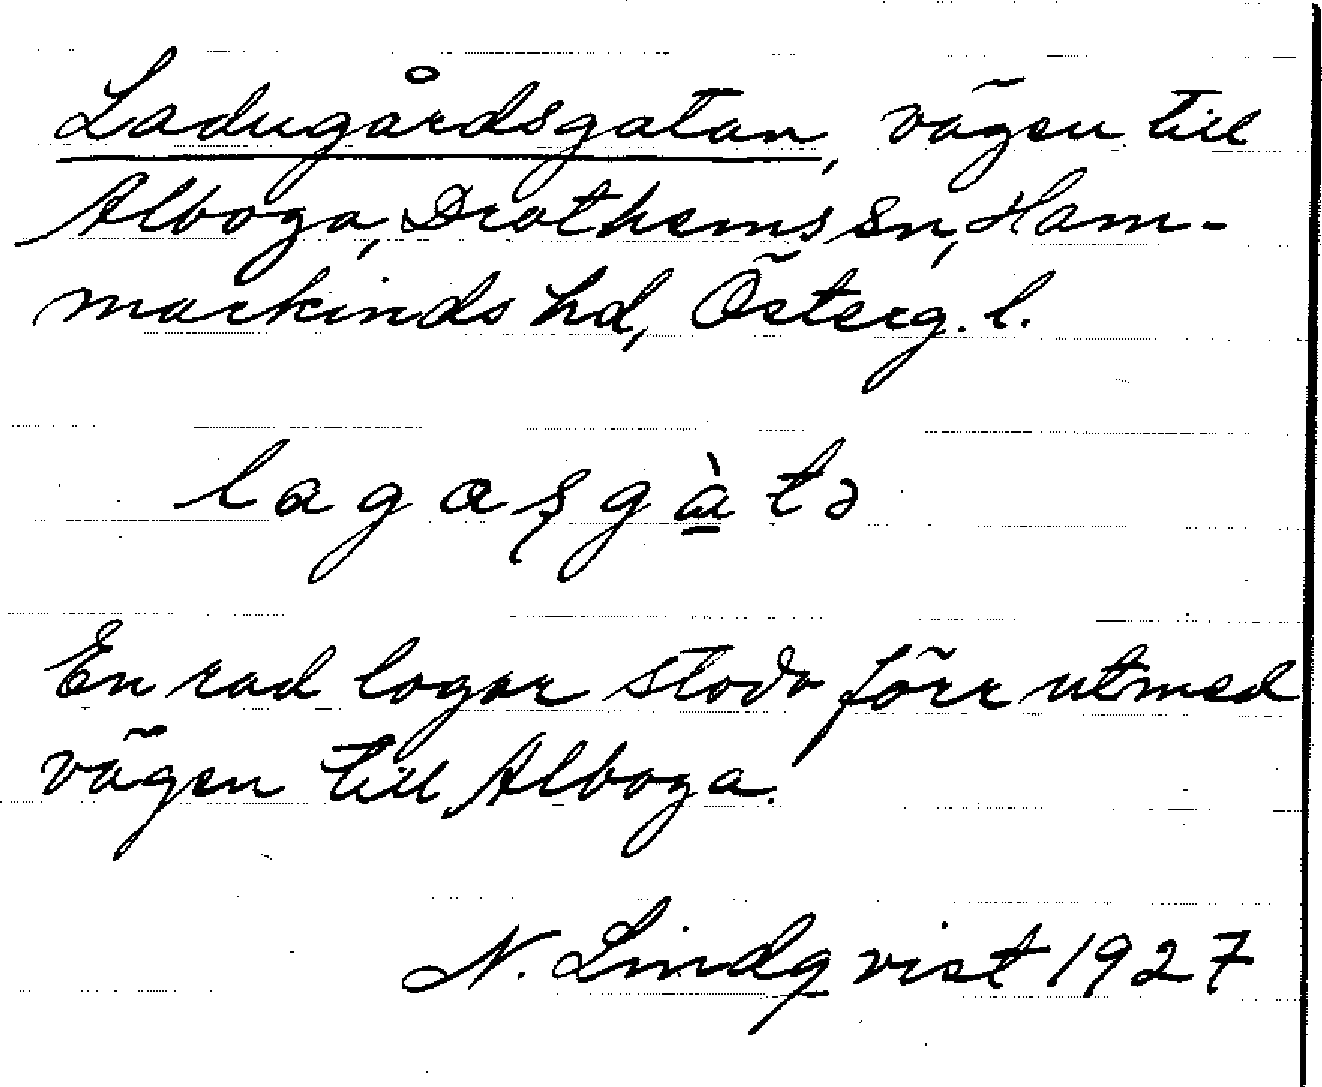 Ladugårdsgatan, vägen till
Alboga, Drothems sn, Ham-
markinds hd, Österg. l.
lagasgàtə
En rad logar stodo förr utmed
vägen till Alboga.
N. Lindqvist 1927